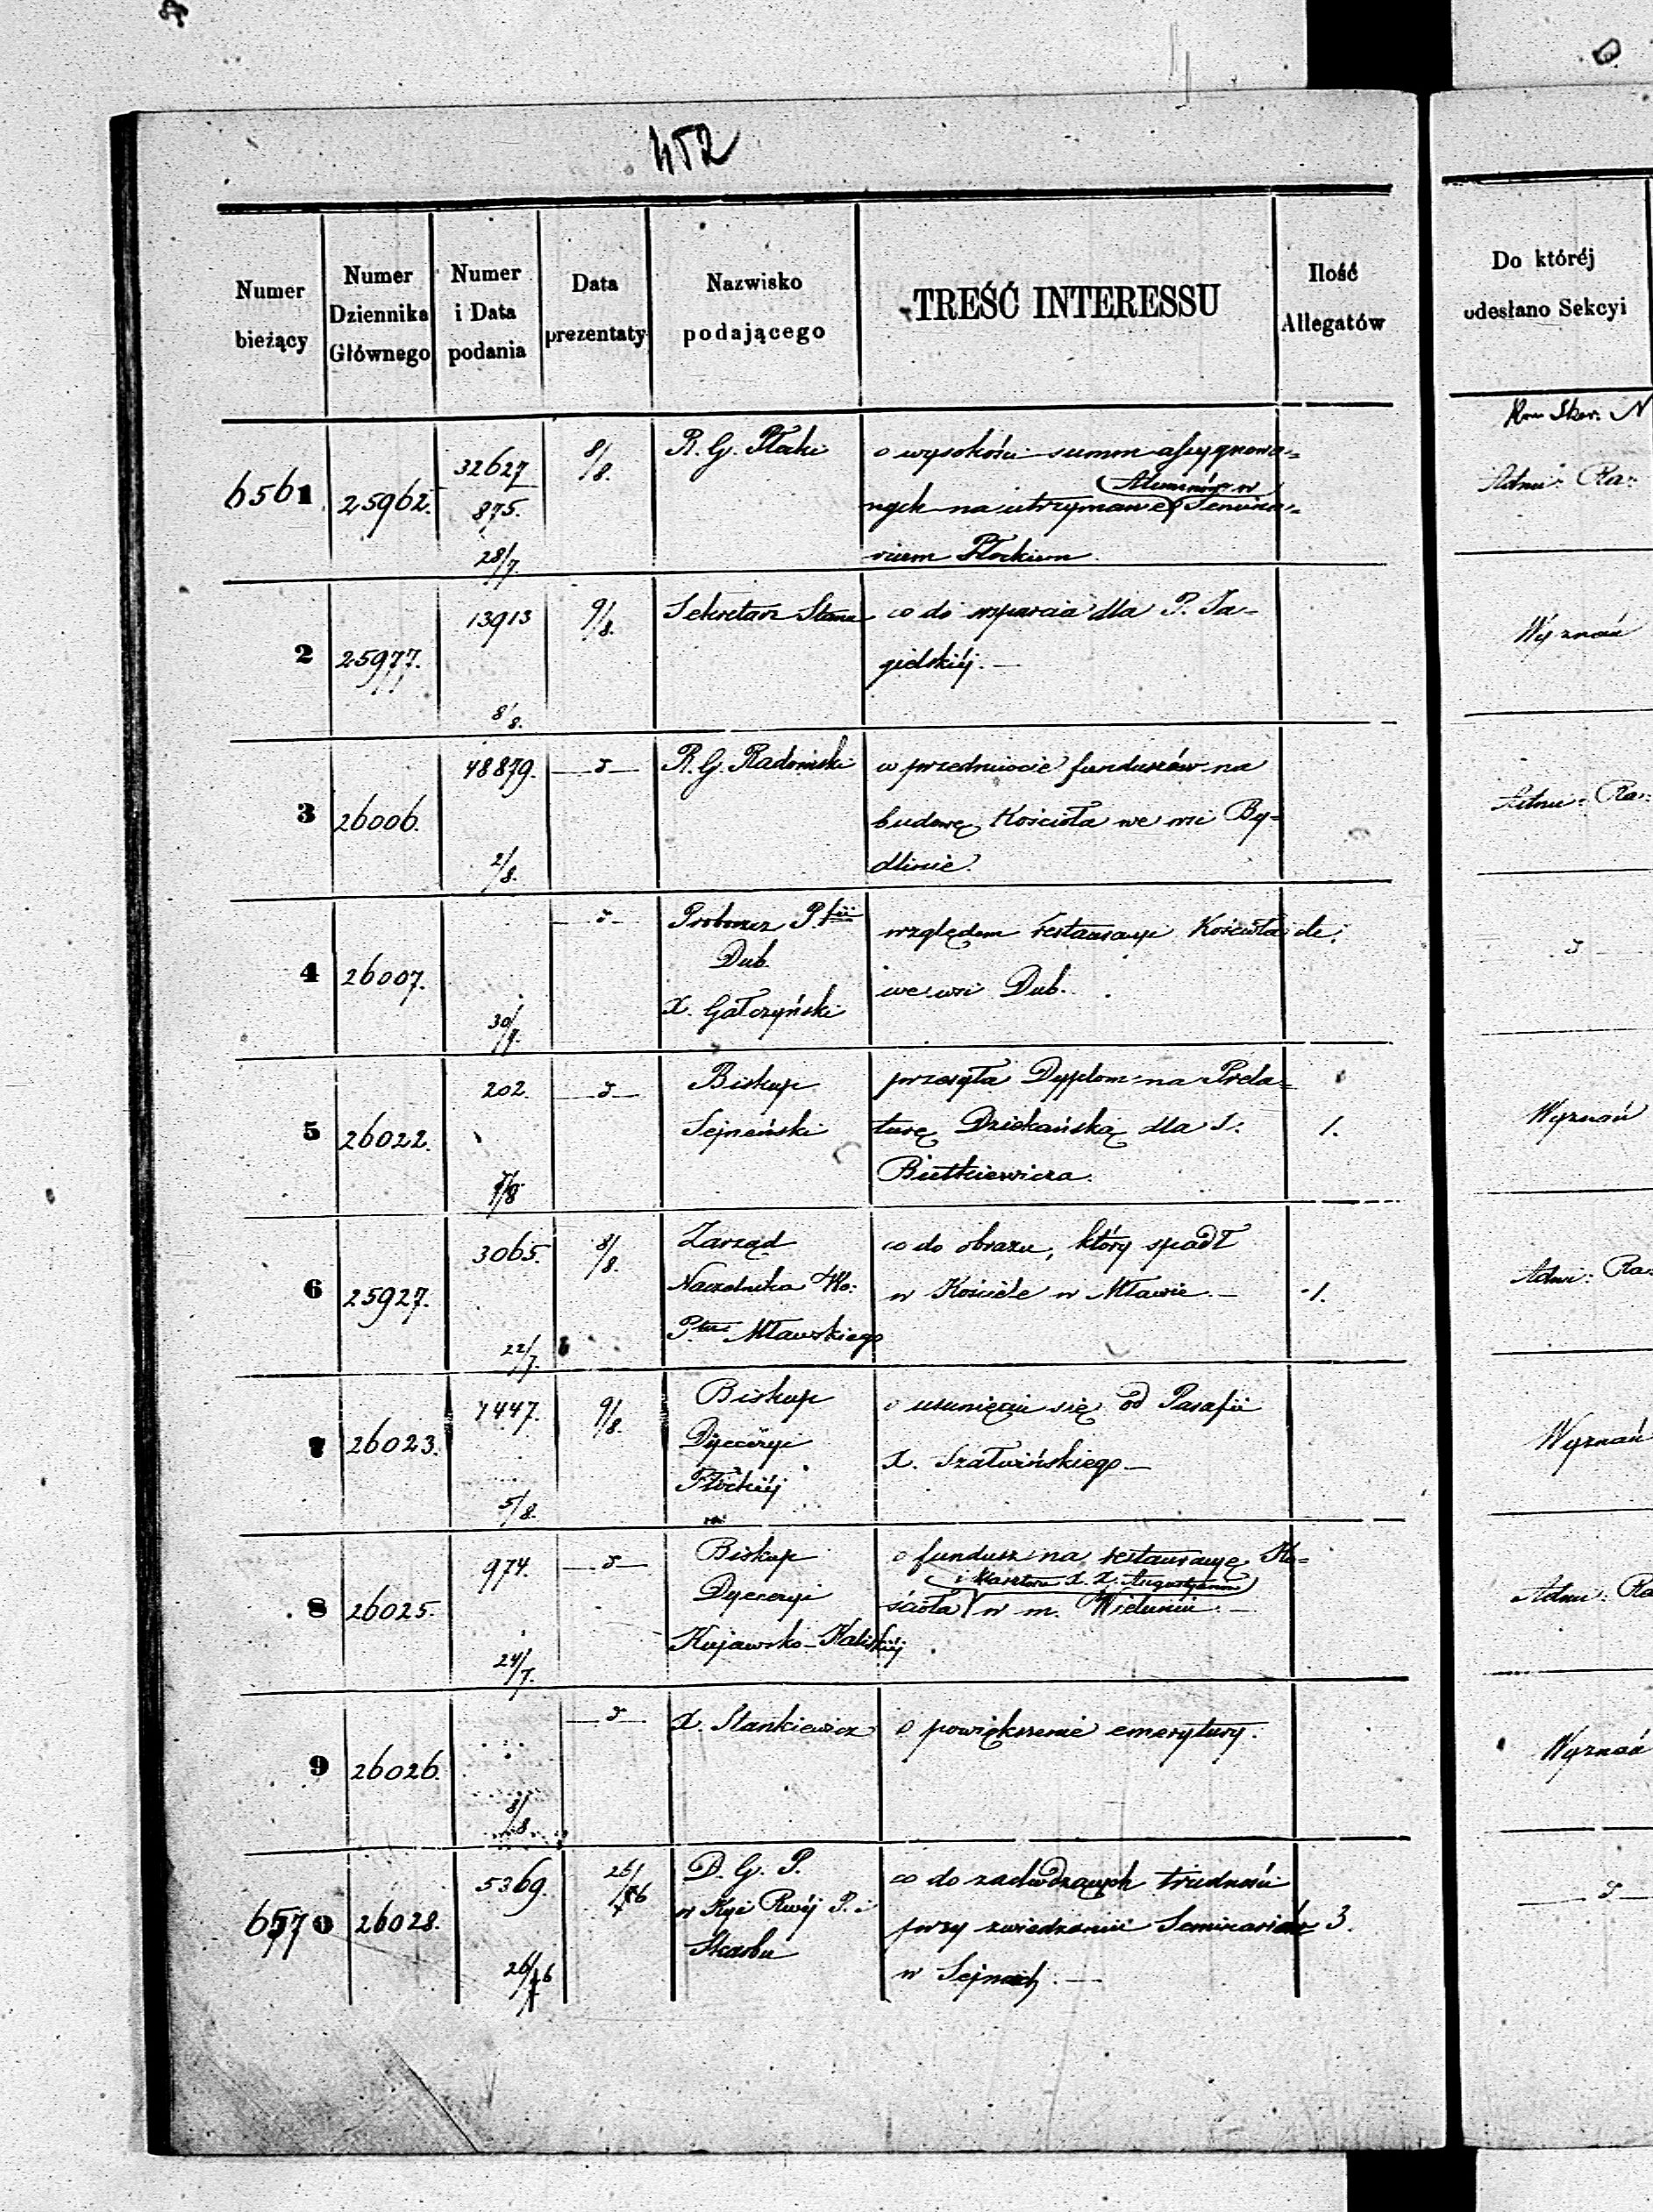 452
Numer bieżący | Numer Dziennika Głównego | Numer i Data podania | Data prezentaty | Nazwisko podającego | TREŚĆ INTERESSU | Ilość Allegatów | Do któréj odesłano Sekcyi
6561 | 25962. | 32627 | 8/8. | R. G. Płocki | o wysokości summ assygnowa= | Adm: Ra:
875. | (Alumnów w)
nych na utrzymanie Semina=
28/7. | rium Płockiem.
2 | 25977. | 13913 | 9/8. | Sekretarz Stanu | co do wsparcia dla P. Ja= | Wyznań
gielskiéj. —
8/8.
3 | 26006. | 48879. | —d— | R. G. Radomski | w przedmiocie funduszów na | Adm: Ra:
budowę Kościoła we wsi By=
2/8. | dlinie.
4 | 26007. | —d— | Proboszcz P.fii | względem restauracyi Kościoła | d
Dub. | we wsi Dub.
30/7. | X. Gałczyński
5 | 26022. | 202. | —d— | Biskup | przesyła Dyplom na Prela= | Wyznań
Sejneński | turę Dziekańską dla | 1.
/8 | Butkiewicza.
6 | 25927. | 3065. | 8/8. | Zarząd | co do obrazu, który spadł | Adm: Ra:
Naczelnika Wo: | w Kościele w Mławie. — | 1.
22/7. | P.tu Mławskiego
7 | 26023. | 1447. | 9/8. | Biskup | o usunięciu się od Parafii | Wyznań
Dyecezyi | X. Szatwińskiego —
5/8. | Płockiéj
8 | 26025. | 974. | —d— | Biskup | o fundusz na restauracyę Ko= | Adm: Ra
Dyecezyi | (i Klasztoru X. X. Augustyanów)
ścioła w m. Wieluniu. —
24/7. | Kujawsko-Kaliskiéj
9 | 26026. | —d— | X. Stankiewicz | o powiększenie emerytury. | Wyznań
8/8.
6570 | 26028. | 5369. | D. G. P. | co do zachodzących trudności | —d—
w Kyi Rwéj P. i | przy zwiedzaniu Seminariów | 3.
Skarbu | w Sejnach. —